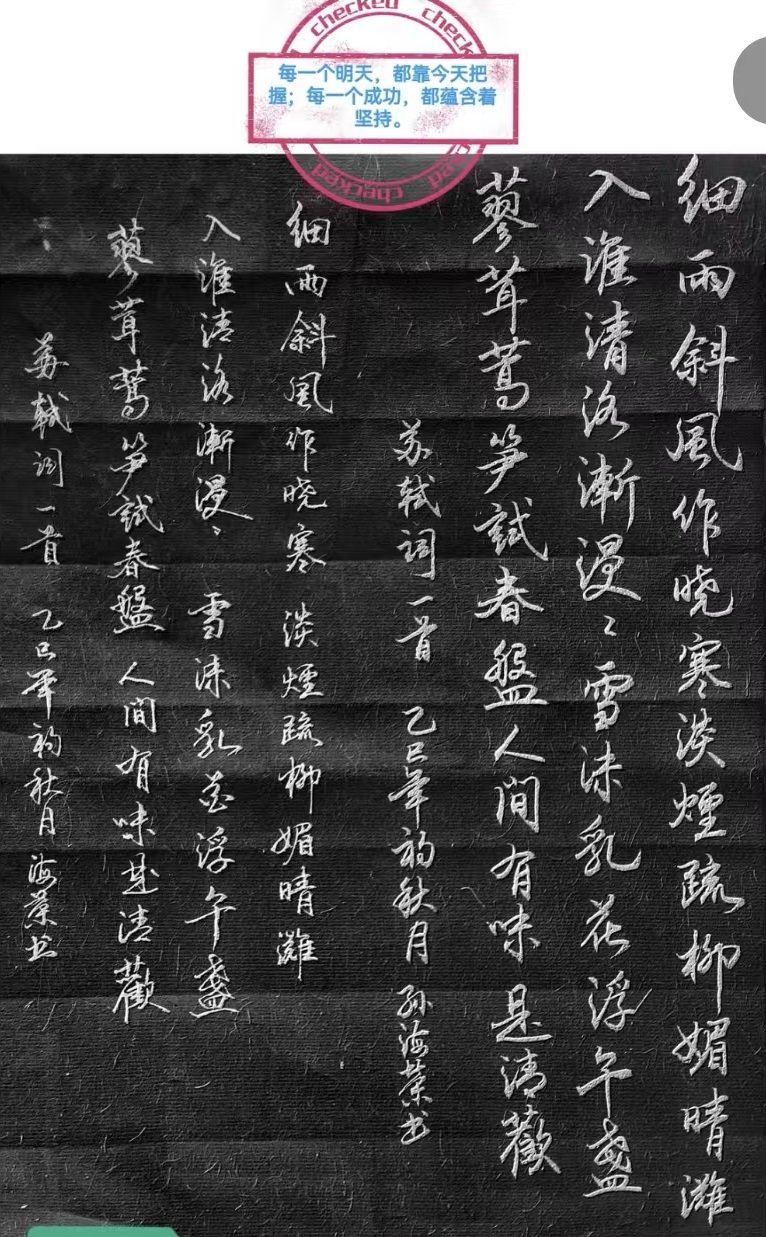 checked checked
每一个明天，都靠今天把
握；每一个成功，都蕴含着
坚持。
checked checked
细雨斜風作晓寒淡煙疏柳媚晴灘
入淮清洛漸漫〻雪沫乳花浮午盏
蓼茸蒿笋試春盤人间有味是清歡
苏轼词一首 乙巳年初秋月 孙海荣书
细雨斜風作晓寒 淡煙疏柳媚晴灘
入淮清洛漸漫〻 雪沫乳花浮午盏
蓼茸蒿笋試春盤人间有味是清歡
苏轼词一首 乙巳年初秋月海荣书